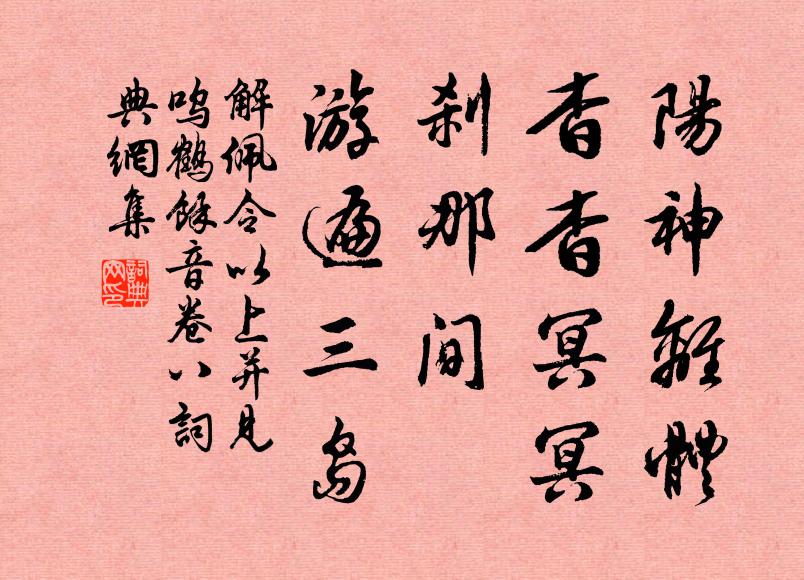 陽神離體
杳杳冥冥
刹那間
游遍三島
解佩令以上并見
鳴鶴餘音卷八詞
典網集
詞典
网印